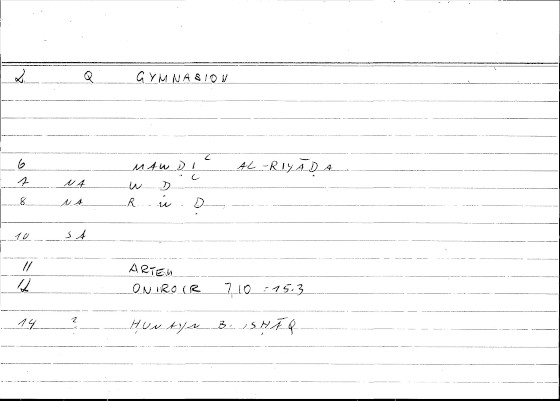 2 Q GYMNASION
6 MAWḌIʿ AL-RIYĀḌA
7 NA W Ḍ ʿ
8 NA R W Ḍ
10 SA
11 ARTEM
12 ONIROCR 7,10 = 15.3
14 ? ḤUNAYN B. ISḤĀQ